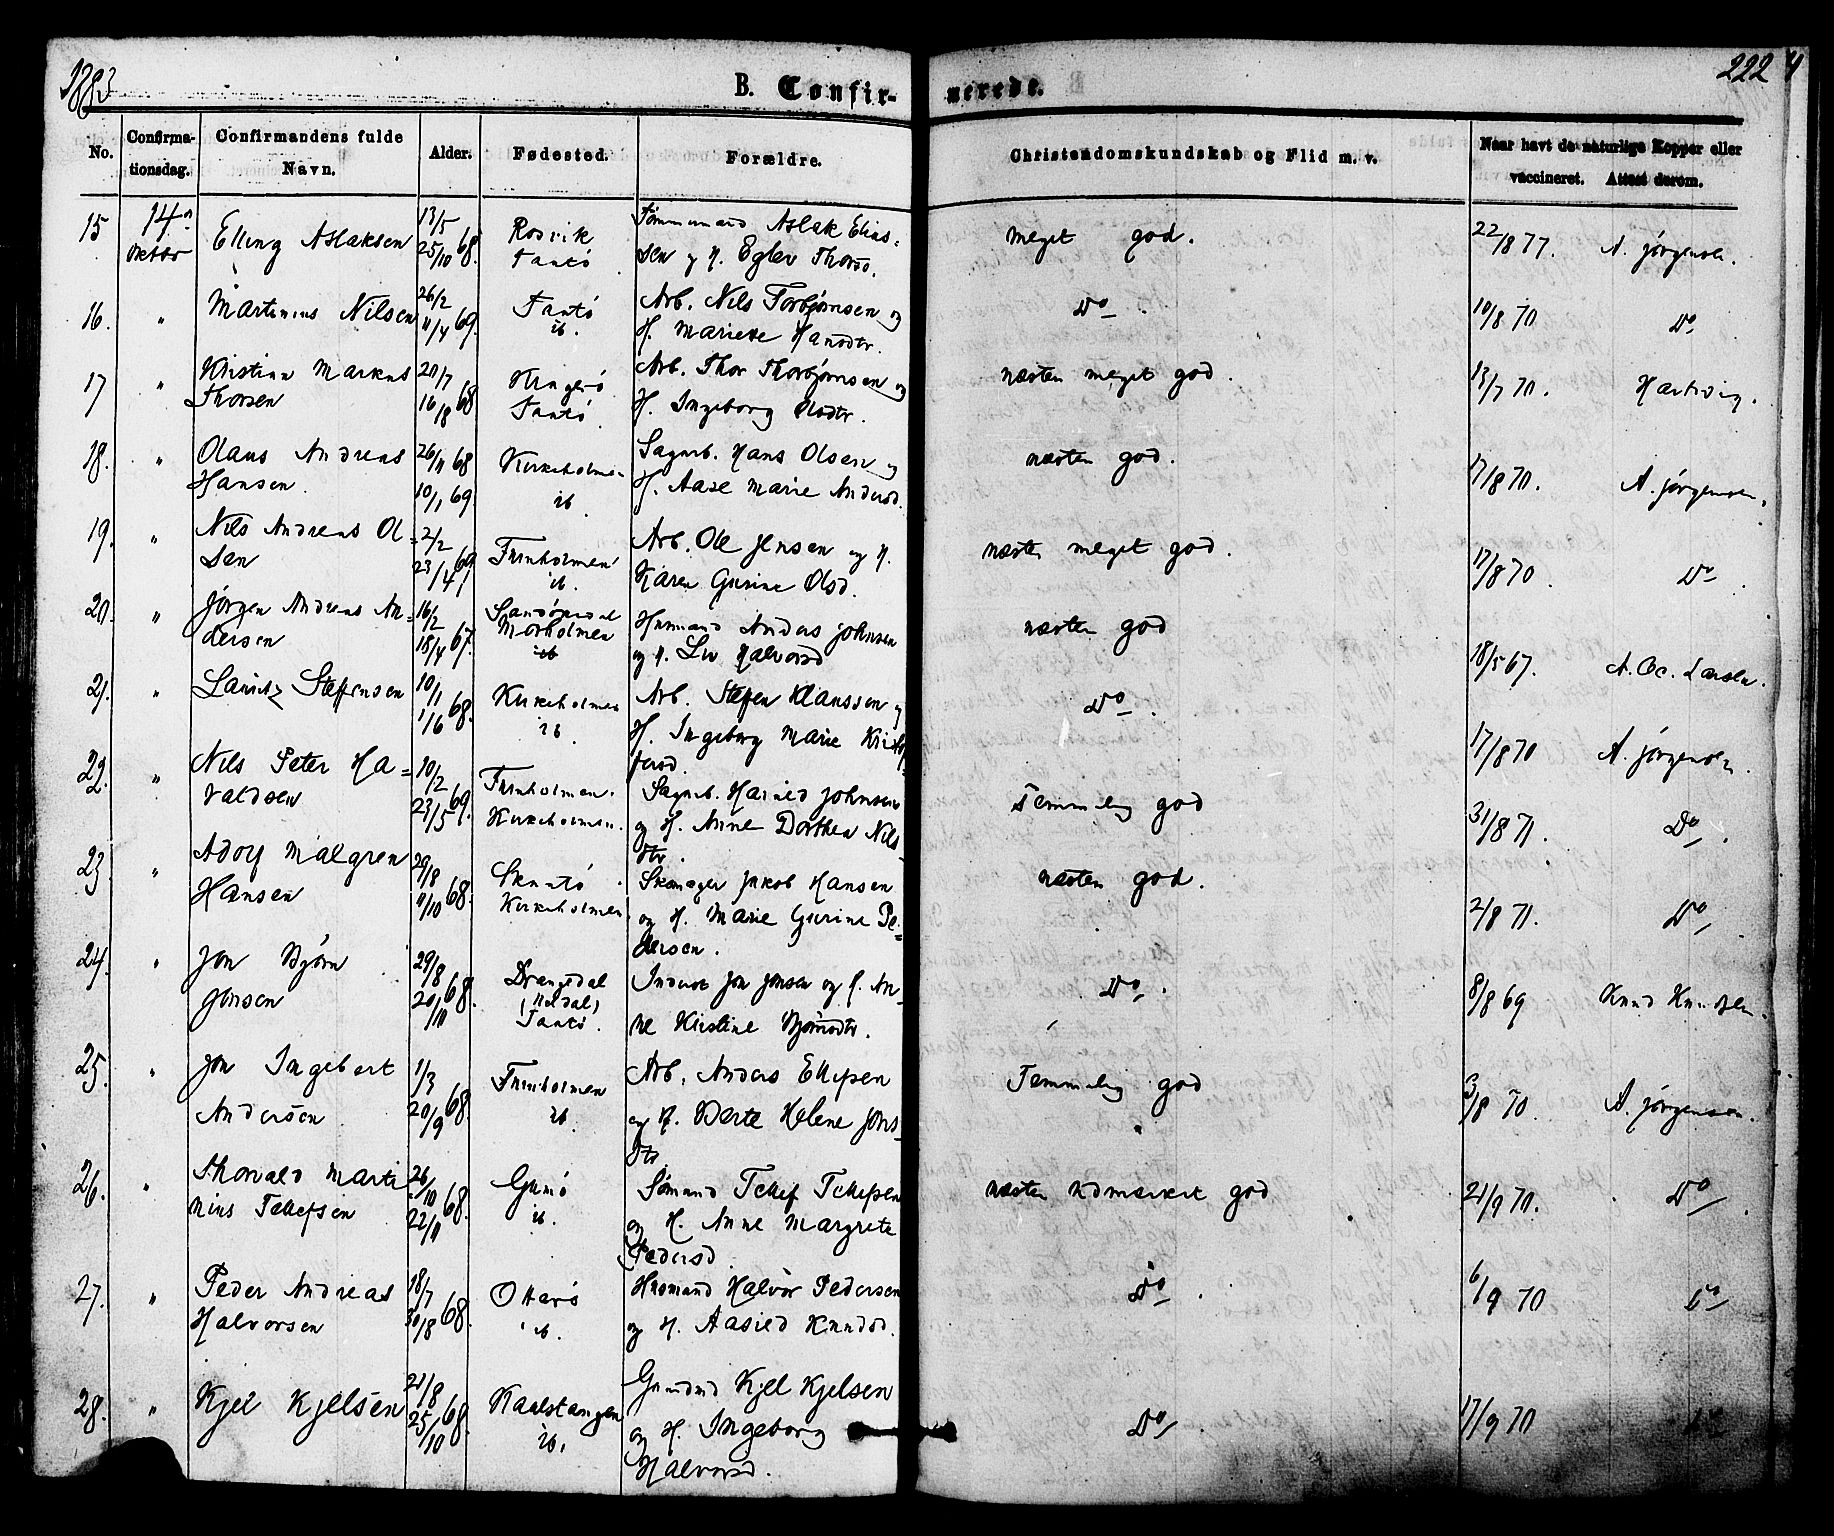 1883
B. Confir-
nerede.
222
No.
Confirma-
tionsdag.
Confirmandens fulde
Navn.
Alder.
Fødested.
Forældre.
Christendomskundskab og Flid m. v.
Naar havt de naturlige Kopper eller
vaccineret. Attest derom.
15 14de 13/5
Oktober Elling Aslaksen 25/10 68.
Rosvik
Tåntö
Aslak Elias-
sen og H. Eglev Thorsd.
meget god. 22/8 77. A. Jørgensen.
16. " Martinius Nilsen 26/2
11/4 69.
Tåntö
ib.
Arb. Nils Torbjørnsen og
H. Mariete Hansdtr.
Do. 10/8 70 Do
17 " Kristian Markus 20/7
Thorsen 16/8 68
Kragerö
Tåntö
Arb. Thor Thorbjørnsen og
H. Ingeborg Olsdtr.
næsten meget god. 13/7 70. Hartvig.
18. " Olaus Andreas 26/11 68
Hansen 10/1 69
Kirkeholmen
ib
Sagarb. Hans Olsen og
H. Aase Marie Andersd.
næsten god. 17/8 70. A. Jørgensen.
19. " Nils Andreas Ol= 2/2
sen 23/4 69
Furuholmen
ib.
Arb. Ole Jensen og H.
Karen Gurine Olsd.
næsten meget god. 17/8 70. Do
20. " Jørgen Andreas An= 16/2
dersen 18/4 67.
Sandøkedal
Morholmen
ib
Husmand Anders Johnsen
og H. Liv Halvorsd
næsten god 18/5 67. A. Oc. Larsen.
21. " Lauritz Steffensen 10/1
1/6 68.
Kirkeholmen
ib.
Arb. Steffen Klaussen og
H. Ingeborg Marie Kristof-
fersd.
Do. 17/8 70 A. Jørgensen.
22. " Nils Peter Ha= 10/2
valdsen 23/5 69.
Furuholmen.
Kirkeholmen.
Sagarb. Harald Johnsen
og H. Anne Dorthea Nils-
dtr.
Temmelig god 31/8 71. Do.
23 " Adolf Malgren 29/8
Hansen 11/10 68.
Skåntö
Kirkeholmen
Skomager Jakob Hansen
og H. Marie Gurine Pe=
dersen.
næsten god. 2/8 71. Do
24. " Jon Bjørn 29/8
Jonsen 20/10 68.
Drangedal
Tåntö.
Inderst Jon Jonsen og H. An-
ne Kirstine Bjørnsdtr.
Do. 8/8 69 Knud Knudsen.
25. " Jon Ingebert 1/3
Andersen 20/9 68.
Furuholmen
ib.
Arb. Anders Ellefsen
og H. Berte Helene Jons-
dtr
Temmelig god 3/8 70. A. Jørgensen.
26. " Thorvald Marti 26/10
nius Tellefsen 22/11 68.
Gumö
ib.
Sømand Tellef Tellefsen
og H. Anne Margrete
Pedersd.
næsten udmærket god 21/9 70. Do
27. " Peder Andreas 18/7
Halvorsen 30/8 68.
Ottarö
ib.
Husmand Halvor Pedersen
og H. Aasild Knudsd.
Do. 6/9 70 Do
28. " Kjel Kjelsen 21/8
25/10 68.
Kaalstangen
ib.
Kjel Kjelsen
og H. Ingeborg
Halvorsd.
Do 17/9 70